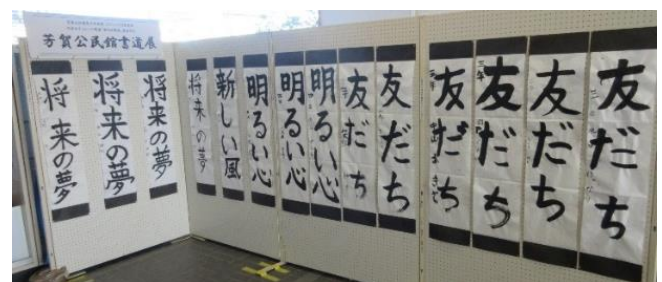 芳賀公民館書道展
将来の夢
将来の夢
将来の夢
将来の夢
新しい風
明るい心
明るい心
明るい心
友だち
友だち
友だち
友だち
友だち
友だち